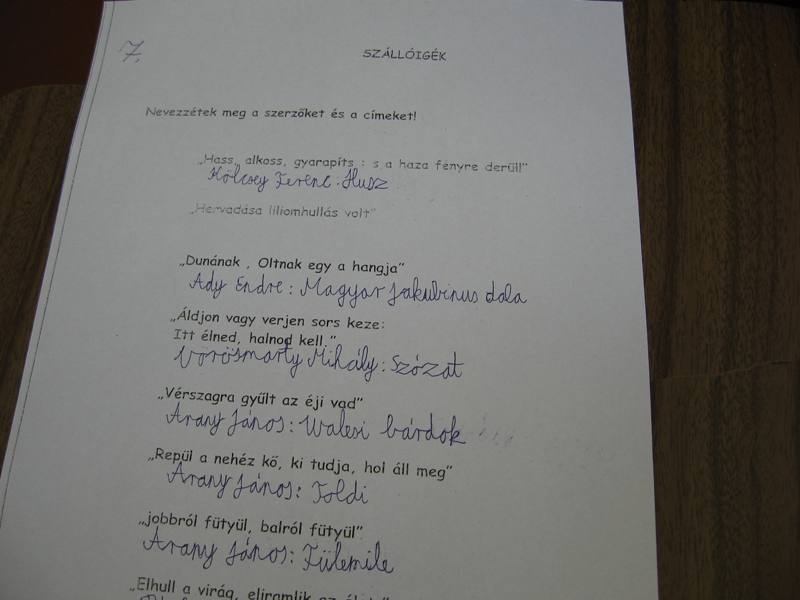 7.
SZÁLLÓIGÉK
Nevezzétek meg a szerzőket és a címeket!
„Hass, alkoss, gyarapíts : s a haza fényre derül!”
Kölcsey Ferenc: Husz
„Hervadása liliomhullás volt”
„Dunának , Oltnak egy a hangja”
Ady Endre: Magyar jakubinus dala
„Áldjon vagy verjen sors keze:
Itt élned, halnod kell.”
Vörösmarty Mihály: Szózat
„Vérszagra gyűlt az éji vad”
Arany János: Walesi bárdok
„Repül a nehéz kő, ki tudja, hol áll meg”
Arany János: Toldi
„jobbról fütyül, balról fütyül”
Arany János: Fülemile
„Elhull a virág, eliramlik az